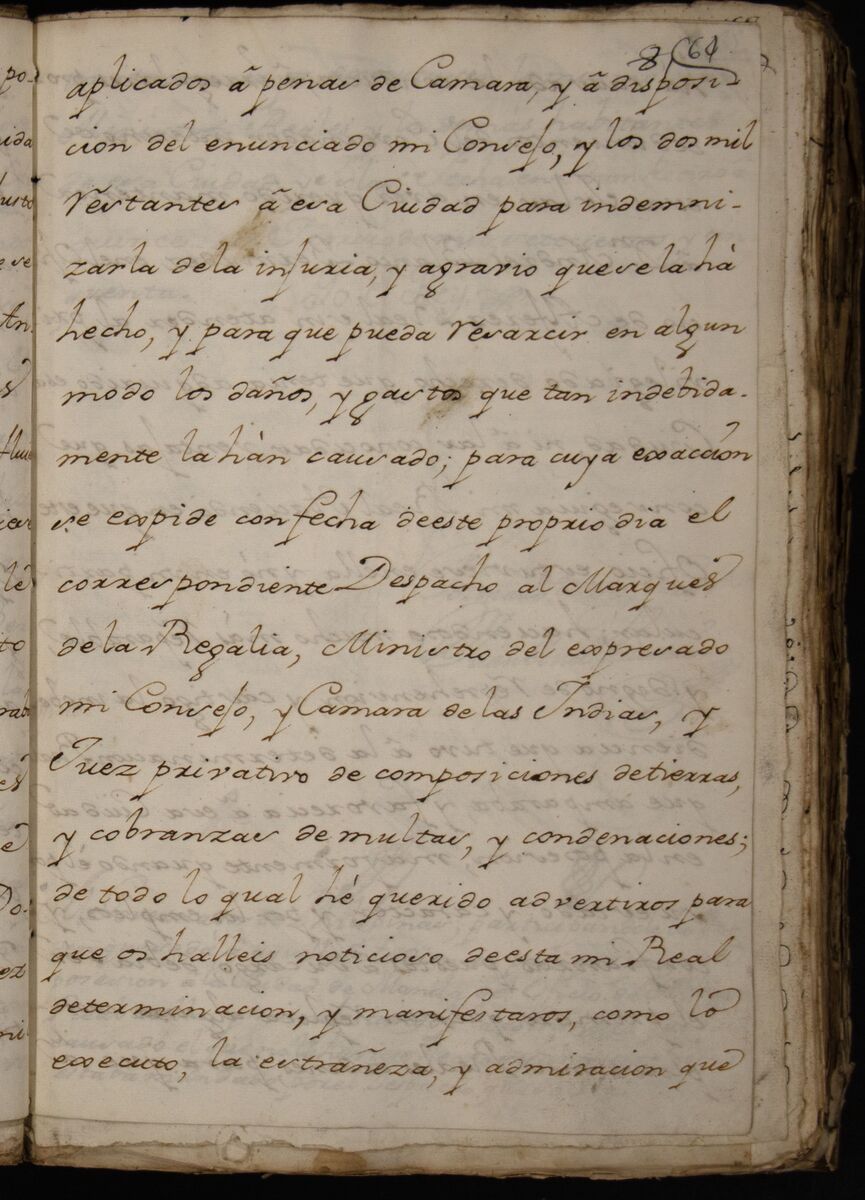 8 (64
aplicados â penas de Camara, y â disposi-
cion del enunciado mi Consejo, y los dos mil
restantes â esa Ciudad para indemni-
zarla dela injuria, y agravio que se la hà
hecho, y para que pueda resarcir en algun
modo los daños, y gastos que tan indebida-
mente la hàn causado; para cuya exacción
se expide con fecha deeste proprio dia el
correspondiente Despacho al Marques
dela Regalia, Ministro del expresado
mi Consejo, y Camara de las Indias, y
Juez privativo de composiciones detierras,
y cobranzas de multas, y condenaciones;
de todo lo qual hé querido advertiros para
que os halleis noticioso deesta mi Real
determinacion, y manifestaros, como lo
executo, la estrañeza, y admiracion que